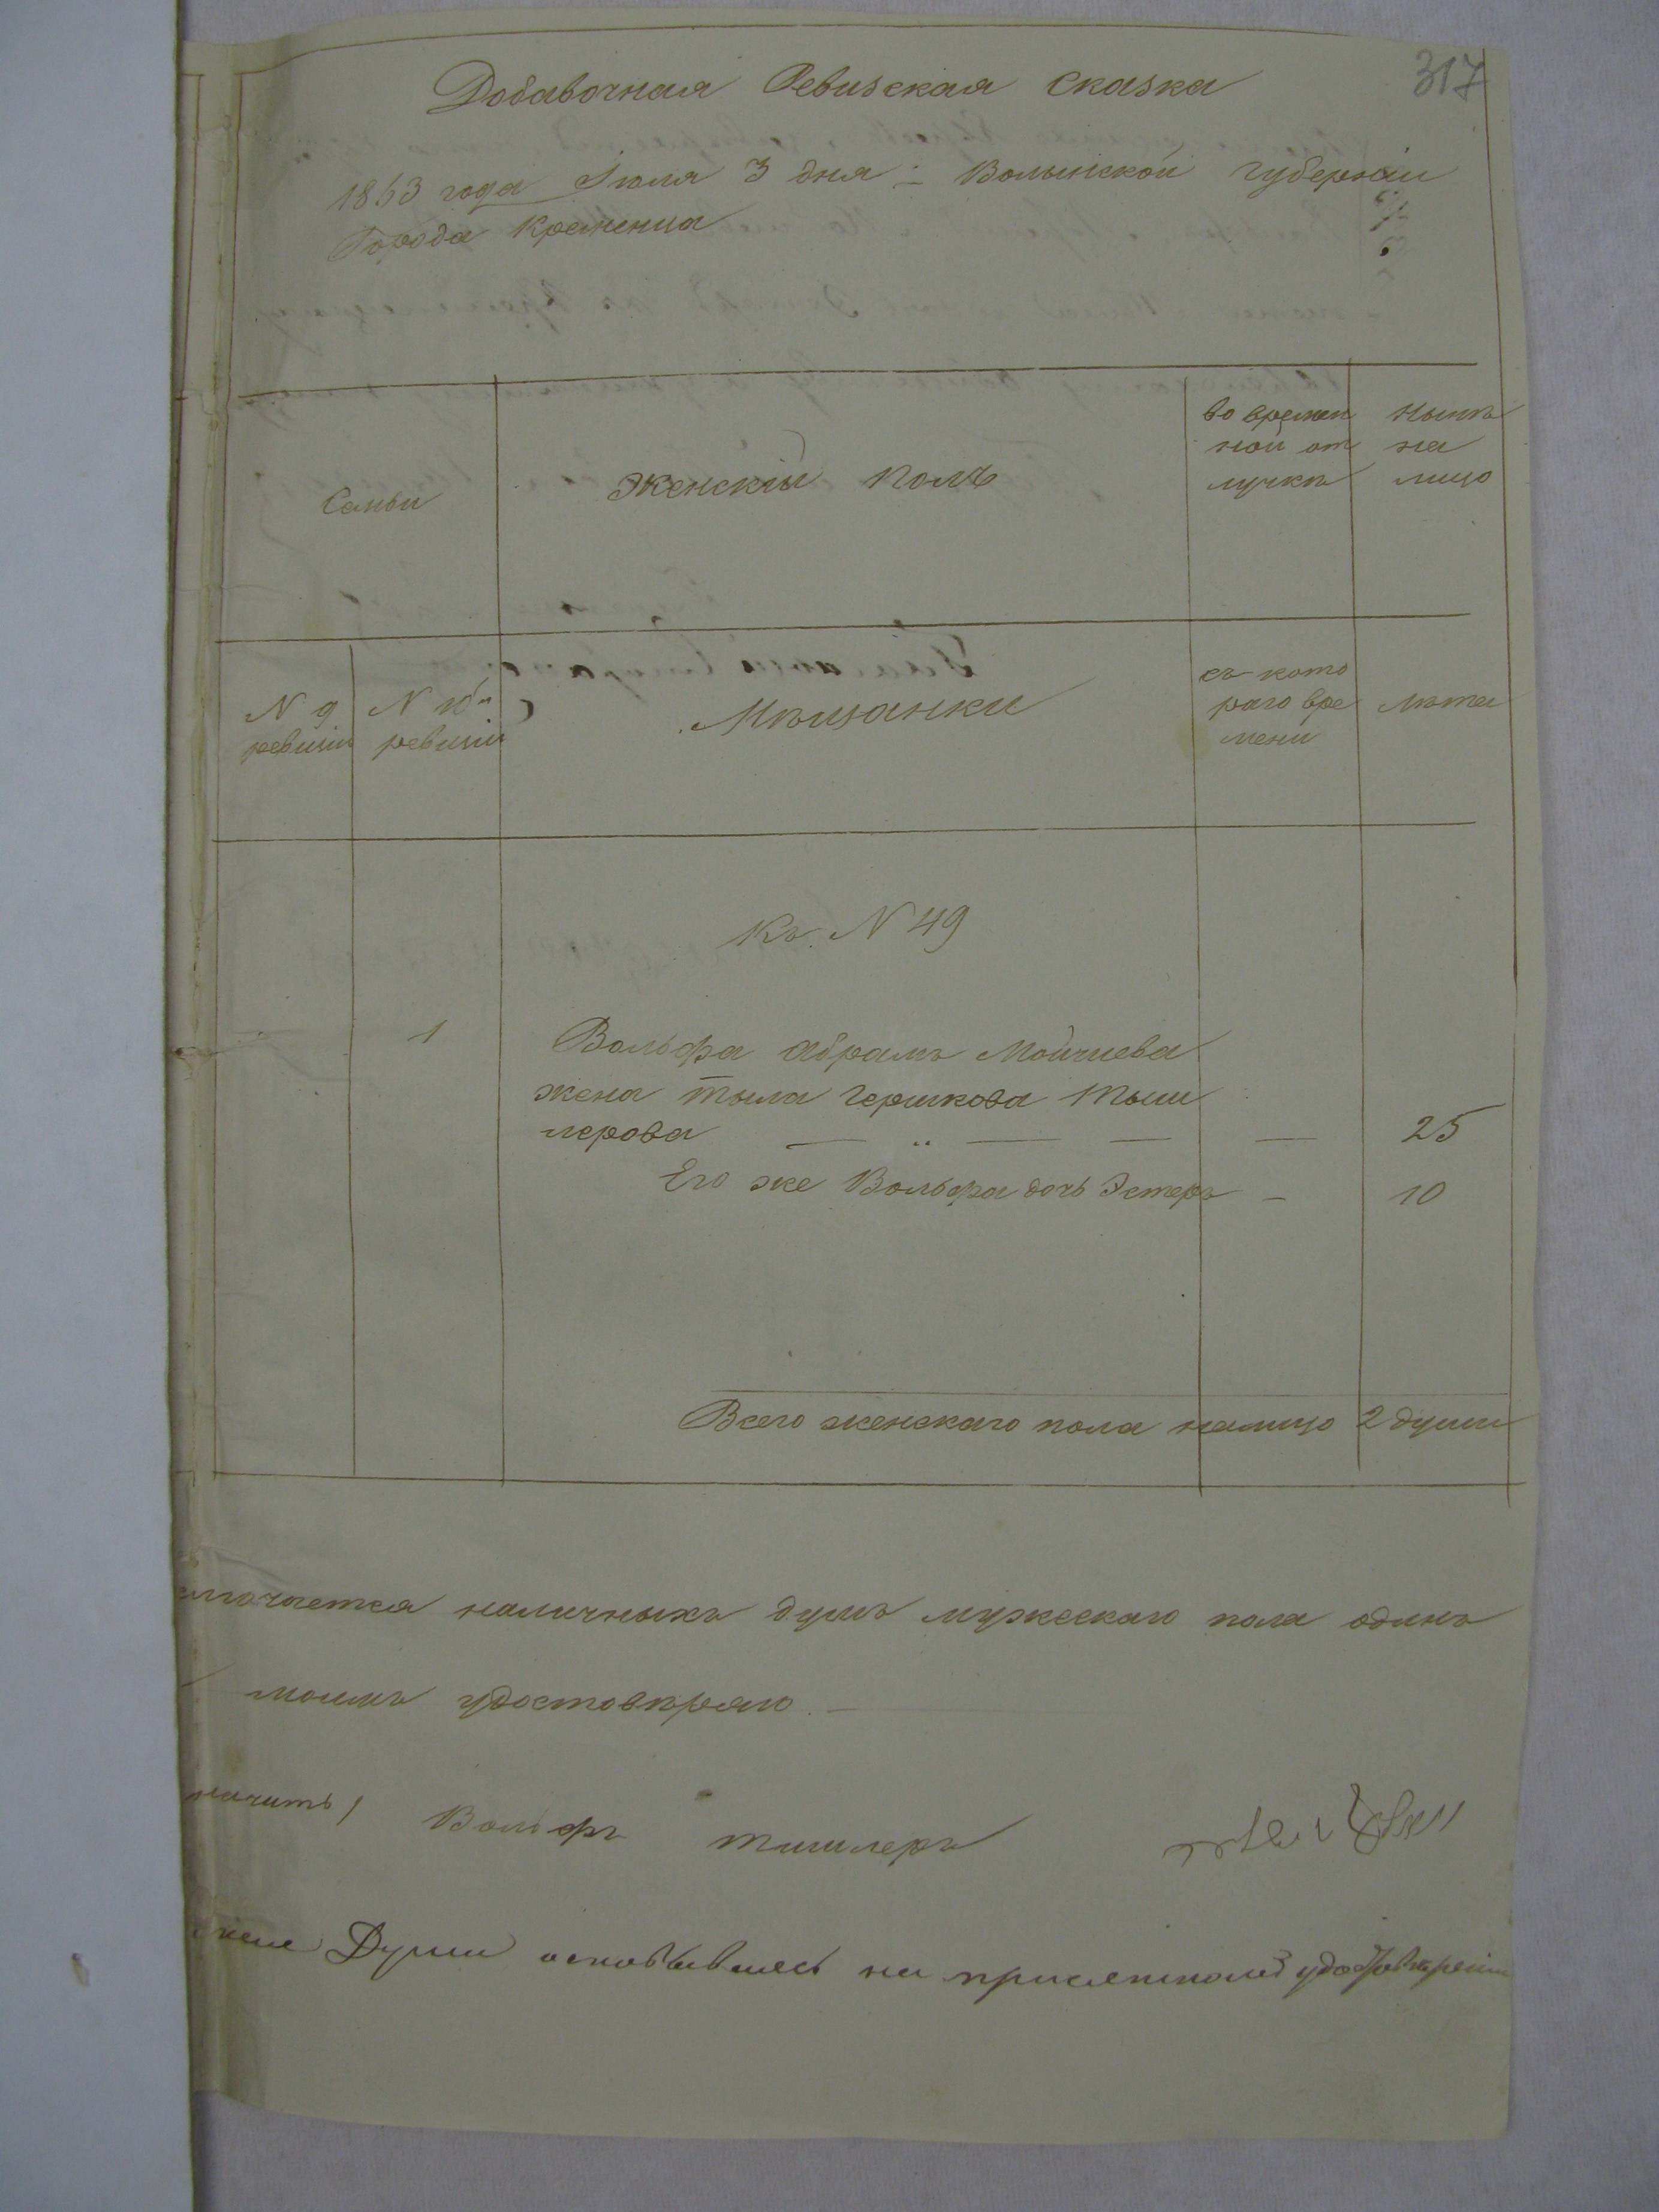 317
Добавочная Ревизская Сказка
1863 года Іюля 3 дня – Волынской Губерніи
Города Кременца
Семьи
Женскій Полъ
во времен
ной от
лучкѣ
Нынѣ
на
лицо
N 9
ревизіи
N 10й
ревизіи
Мѣщанки
съ кото
раго вре
мени
Лѣта
Къ N 49
1
Вольфа Абрамъ Мойшева
жена Тыла Гершкова Тыш
лерова — „ — — — 25
Его же Вольфа дочь Эстеръ — 10
Всего женскаго пола налицо 2 души
наличныхъ душъ мужескаго пола одинъ
моимъ удостовѣряю. —
Вольфъ Тишлеръ
Души основывшись на присяжномъ удостовѣреніи